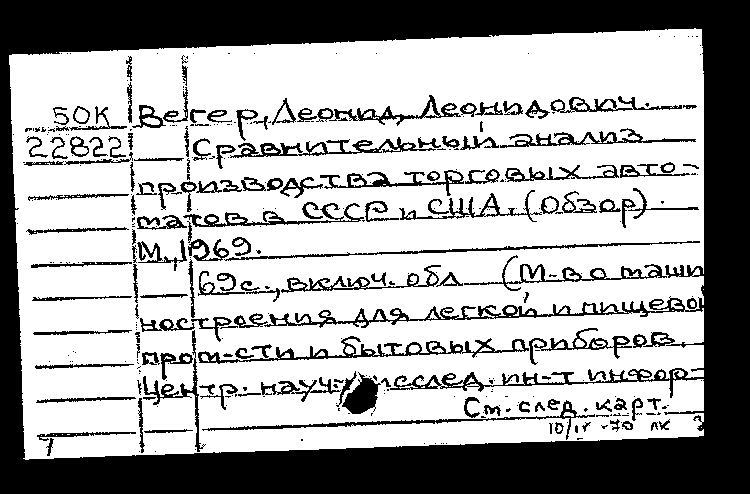 50К Вегер, Леонид, Леонидович.
22822 Сравнительный анализ
производства торговых авто-
матов в СССР и США. (Обзор).
М., 1969.
69с., включ. обл (М-во маши
ностроения для легкой и пищевой
пром-сти и бытовых приборов.
Центр. науч.- исслед. ин-т инфор-
См. след. карт.